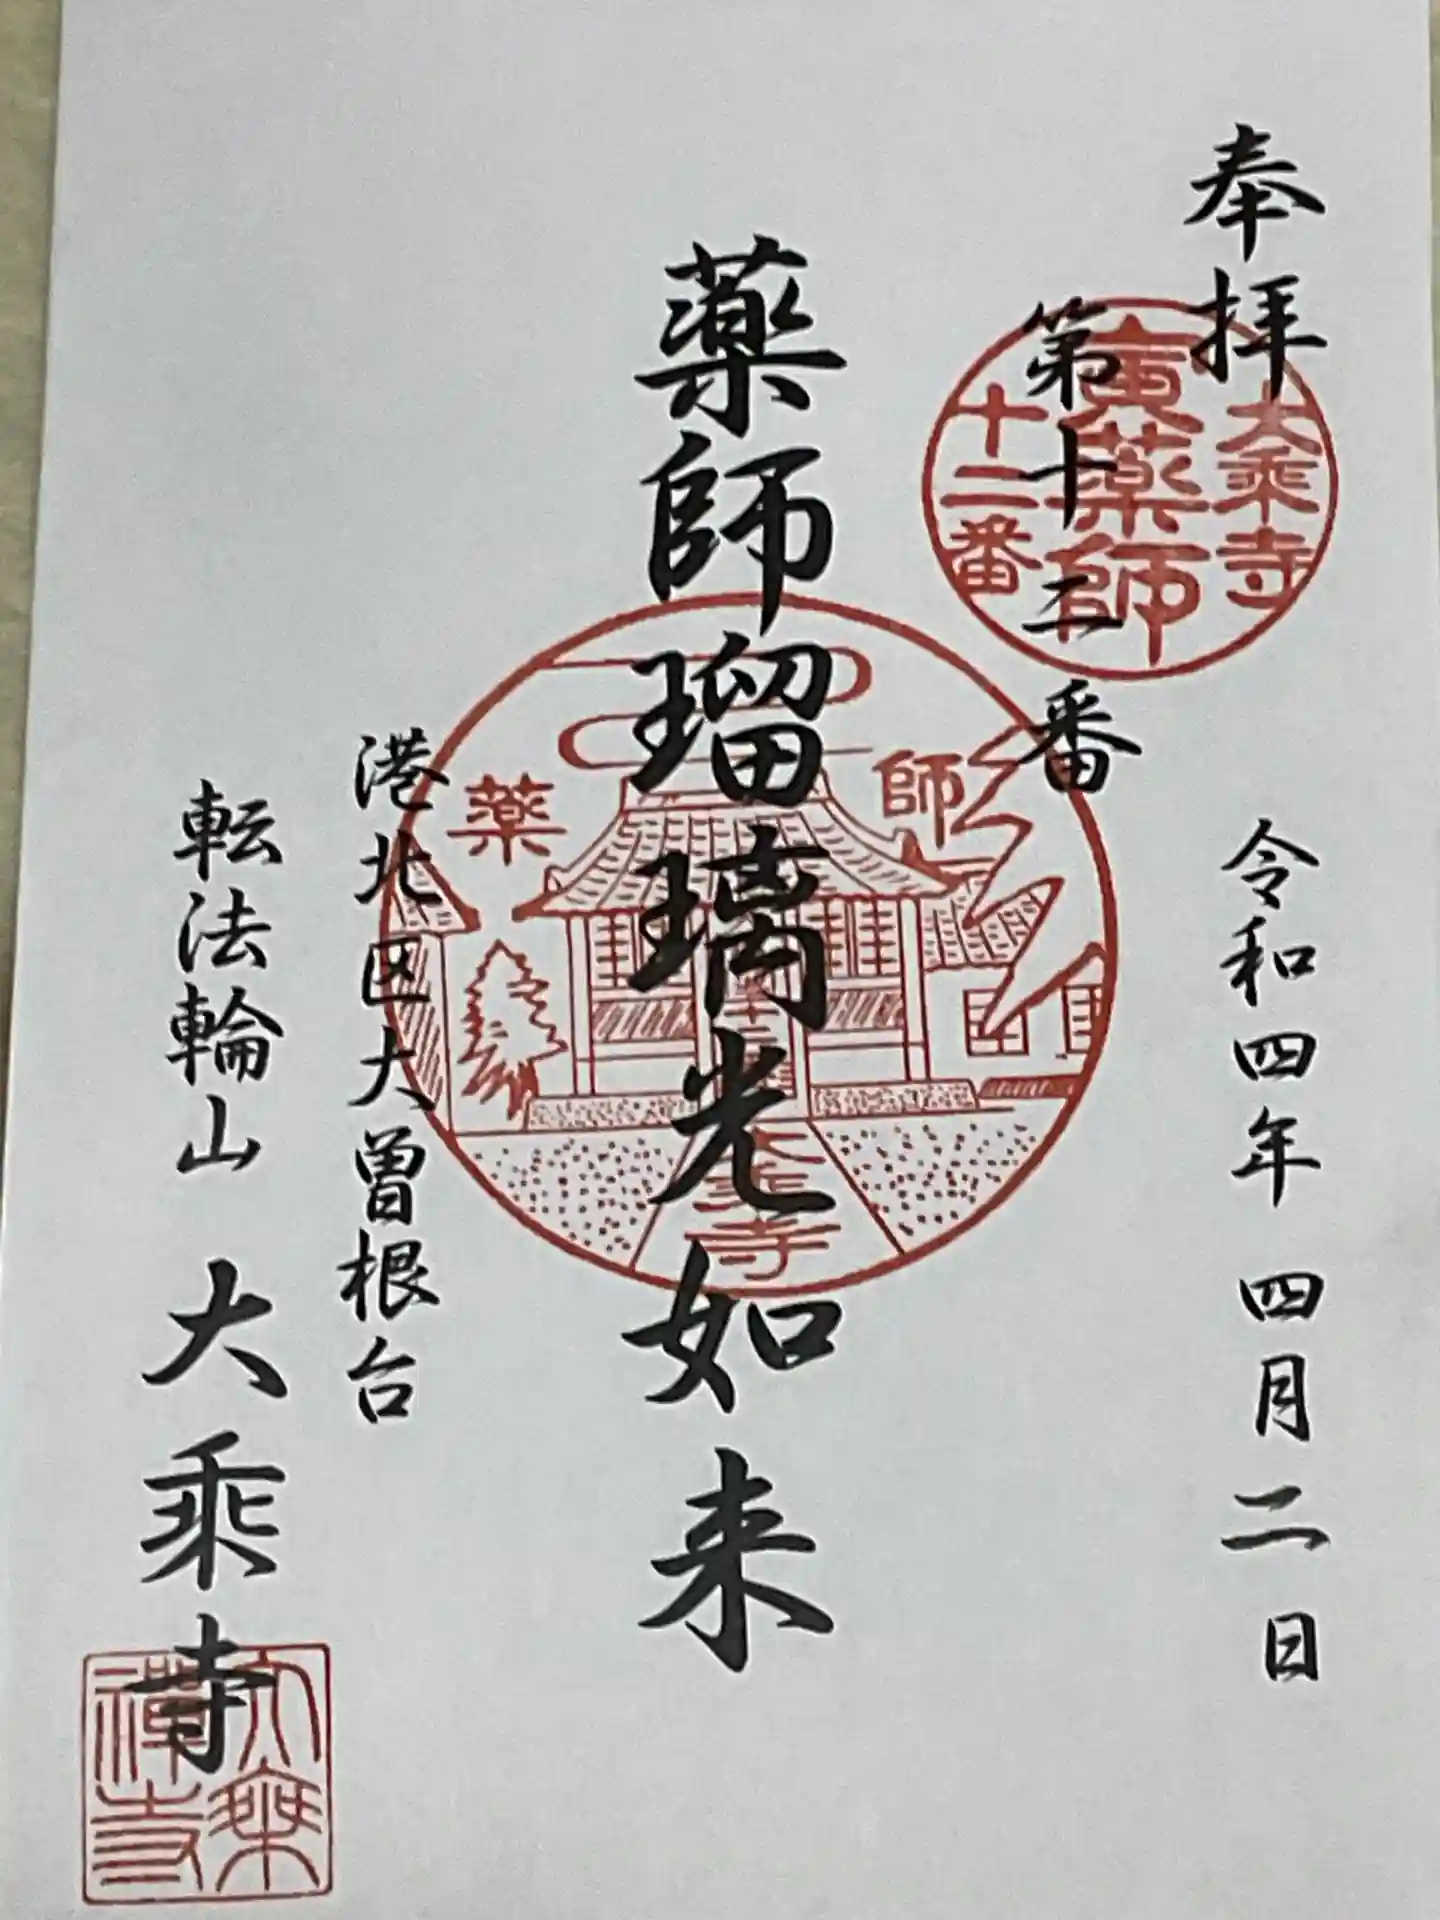 奉拝
令和四年 四月二日
大乗寺
寅薬師
十二番
第十二番
薬師瑠璃光如来
薬師
大乗寺
港北区大曽根台
転法輪山 大乗寺
大乗
禅寺